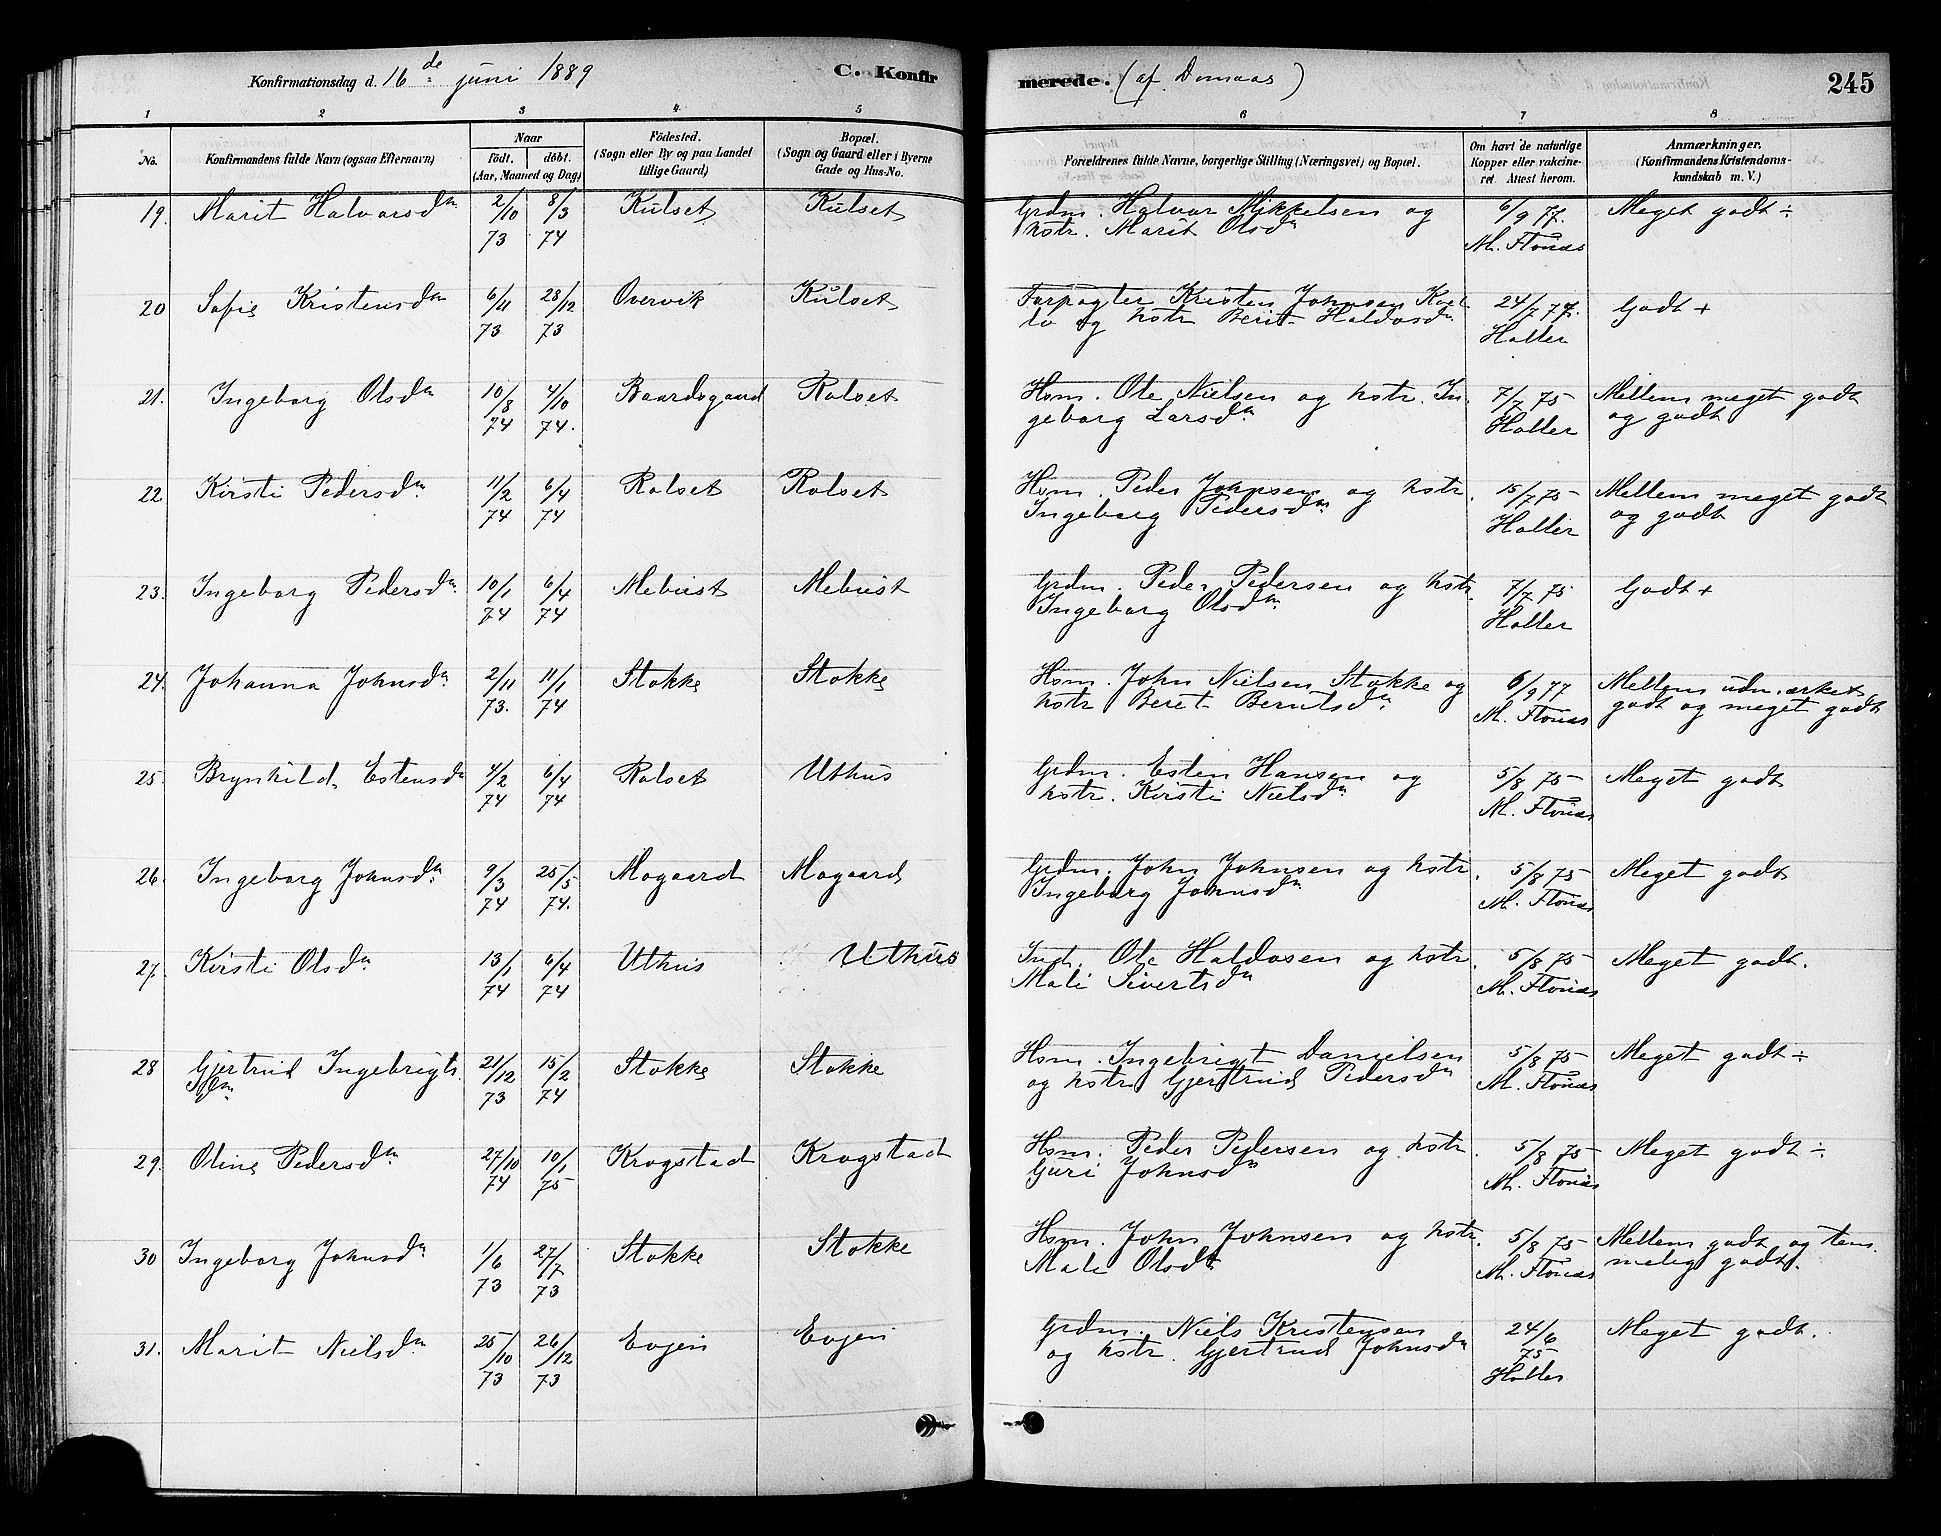 Konfirmationsdag d. 16de juni 1889 C. Konfirmerede. (af Domaas) 245
1 2 3 4 5 6 7 8
No. Konfirmandens fulde Navn (ogsaa Efternavn) Naar født. døbt. (Aar, Maaned og Dag) Fødested. (Sogn eller By og paa Landet tillige Gaard) Bopæl. (Sogn og Gaard eller i Byerne Gade og Hus-No. Forældrenes fulde Navne, borgerlige Stilling (Næringsvei) og Bopæl. Om havt de naturlige Kopper eller vakcineret. Attest herom. Anmærkninger. (Konfirmandens Kristendomskundskab m. V.)
19. Marit Halvorsdn 2/10 73 8/3 74 Kulset Kulset Grdm. Halvor Mikkelsen og
hstr. Marit Olsdn 6/9 77. M. Flønæs Meget godt ÷
20 Sofie Kristensdn 6/11 73 28/12 73 Overvik Kulset Forpagter Kristen Johnsen
og hstr Berit Haldosdn 24/7 77. Haller Godt +
21. Ingeborg Olsdn 10/8 74 4/10 74. Baardsgaard Rolset Hsm. Ole Nielsen og hstr. In-
geborg Larsdn 7/7 75 Haller Mellem meget godt
og godt
22 Kirsti Pedersdn. 11/2 74 6/4 74 Rolset Rolset Hsm. Peder Johnsen og hstr.
Ingeborg Pedersdn. 15/7 75 Haller Mellem meget godt
og godt
23. Ingeborg Pedersdn. 10/1 74 6/4 74 Mebust Mebust Grdm. Peder Pedersen og hstr.
Ingeborg Olsdn. 7/7 75 Haller Godt +
24. Johanna Johnsdn. 2/11 73. 11/1 74 Stokke Stokke Hsm. John Nielsen Stokke og
hstr Beret Berntsdn. 6/9 77 M. Flønæs Mellem udmærket
godt og meget godt
25. Brynhild Estensdn 4/2 74 6/4 74 Rolset Uthus Grdm. Esten Hansen og
hstr. Kirsti Nielsdn. 5/8 75 M. Flønæs Meget godt
26. Ingeborg Johnsdn. 9/3 74 25/5 74. Mogaard Mogaard Grdm. John Johnsen og hstr.
Ingeborg Johnsdn 5/8 75 M. Flønæs Meget godt
27. Kirsti Olsdn. 13/1 74 6/4 74 Uthus Uthus Ind. Ole Haldosen og hstr.
Mali Sivertsdn 5/8 75 M. Flønæs Meget godt.
28 Gjertrud Ingebrigts-
dn. 21/12 73 15/2 74 Stokke Stokke Hsm. Ingebrigt Danielsen
og hstr Gjertrud Pedersdn 5/8 75 M. Flønæs Meget godt ÷
29. Oline Pedersdn. 27/10 74 10/1 75 Krogstad Krogstad Hsm. Peder Pedersen og hstr.
Guri Johnsdn 5/8 75 M. Flønæs Meget godt ÷
30 Ingeborg Johnsdn 1/6 73 27/7 73 Stokke Stokke Hsm. John Johnsen og hstr.
Mali Olsdt. 5/8 75 M. Flønæs Mellem godt og tem-
melig godt.
31. Marit Nielsdn 25/10 73 26/12 73 Evjen Evjen Grdm. Niels Kristensen
og hstr. Gjertrud Johnsdn 24/6 75 Haller Meget godt.